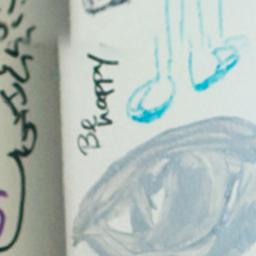 Be
happy